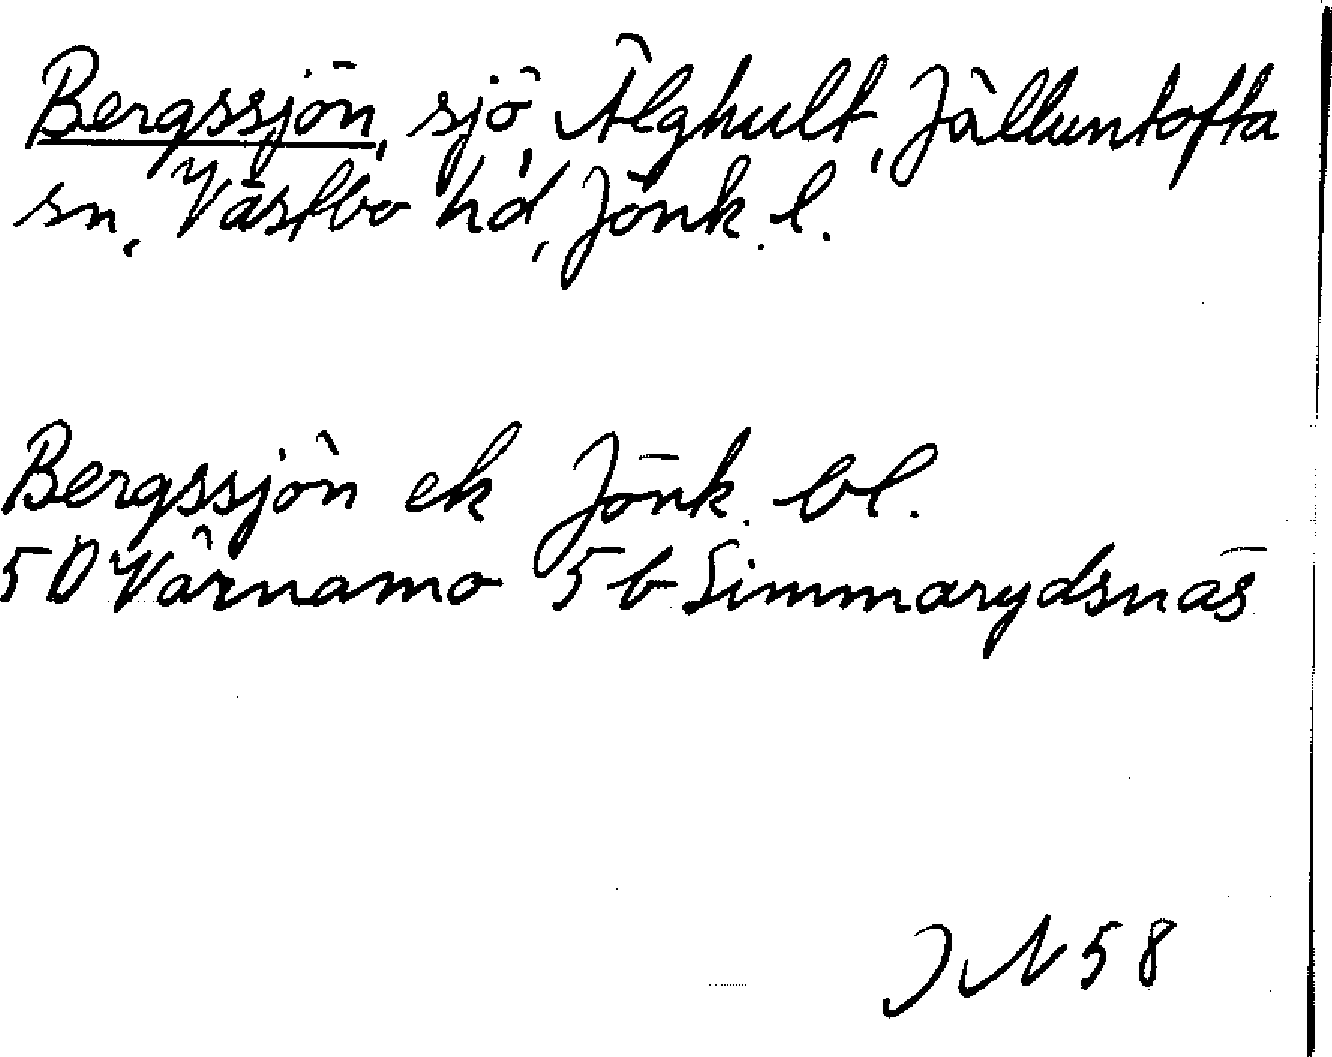 Bergssjön, sjö, Älghult, Jälluntofta
sn, Västbo hd, Jönk. l.
Bergssjön ek Jönk. bl.
5D Värnamo 5b Simmarydsnäs
JN58